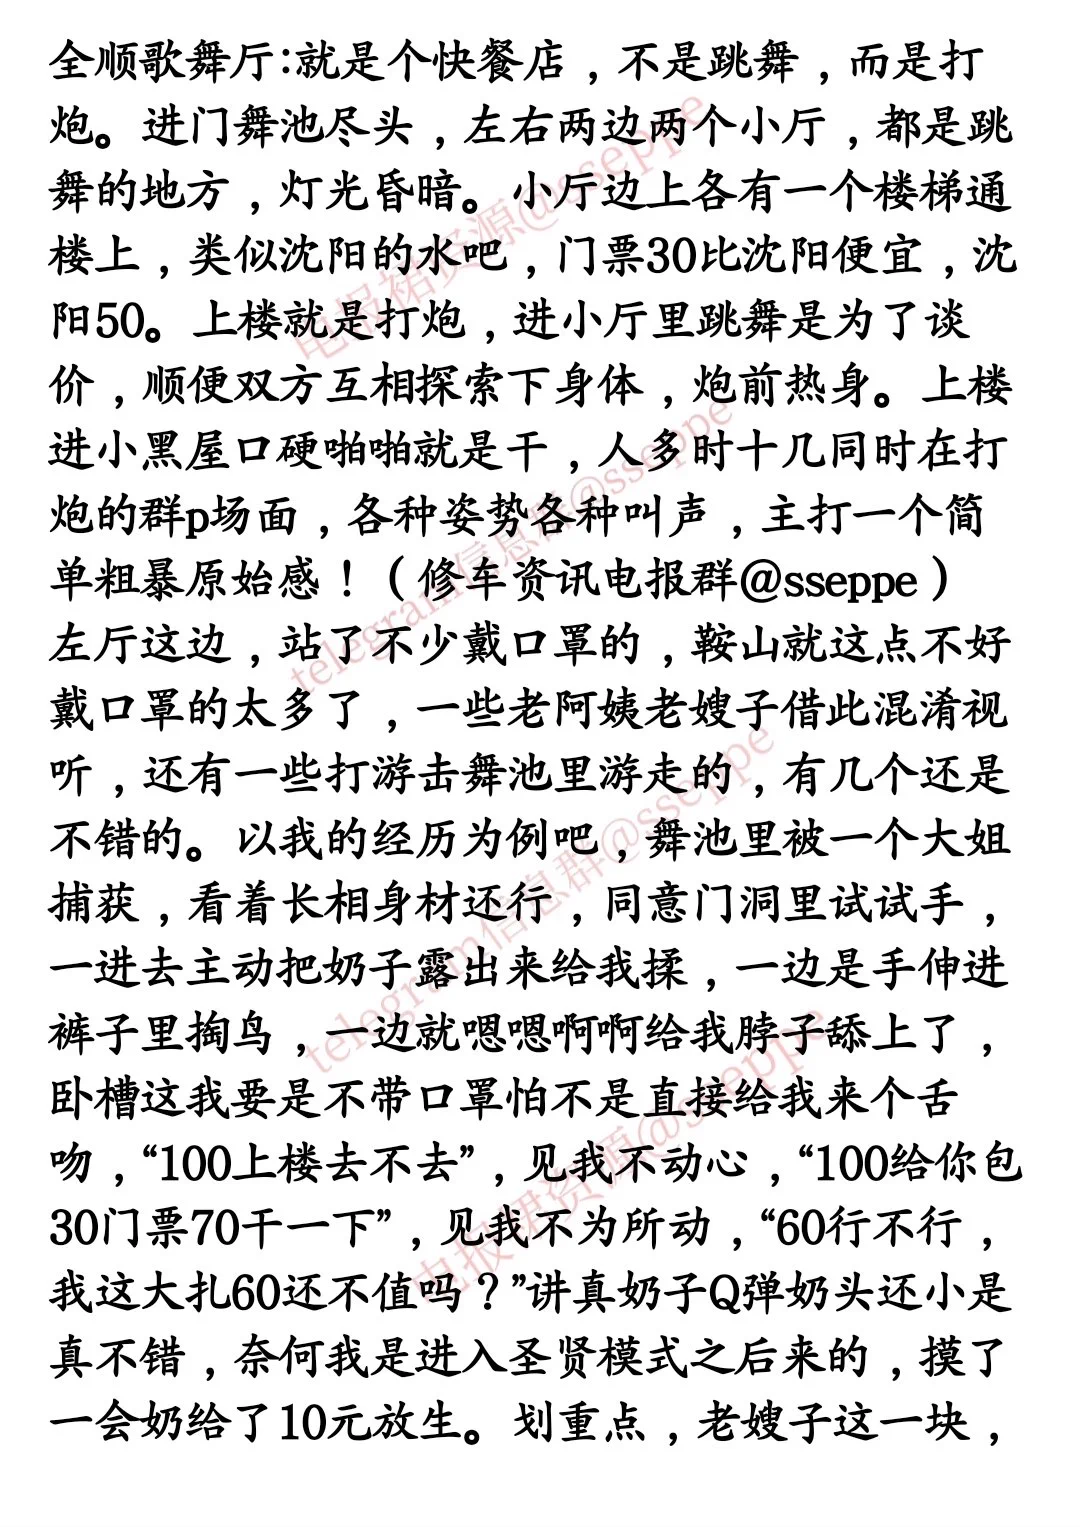 全顺歌舞厅:就是个快餐店，不是跳舞，而是打
炮。进门舞池尽头，左右两边两个小厅，都是跳
舞的地方，灯光昏暗。小厅边上各有一个楼梯通
楼上，类似沈阳的水吧，门票30比沈阳便宜，沈
阳50。上楼就是打炮，进小厅里跳舞是为了谈
价，顺便双方互相探索下身体，炮前热身。上楼
进小黑屋口硬啪啪就是干，人多时十几同时在打
炮的群p场面，各种姿势各种叫声，主打一个简
单粗暴原始感！（修车资讯电报群@sseppe）
左厅这边，站了不少戴口罩的，鞍山就这点不好
戴口罩的太多了，一些老阿姨老嫂子借此混淆视
听，还有一些打游击舞池里游走的，有几个还是
不错的。以我的经历为例吧，舞池里被一个大姐
捕获，看着长相身材还行，同意门洞里试试手，
一进去主动把奶子露出来给我揉，一边是手伸进
裤子里掏鸟，一边就嗯嗯啊啊给我脖子舔上了，
卧槽这我要是不带口罩怕不是直接给我来个舌
吻，“100上楼去不去”，见我不动心，“100给你包
30门票70干一下”，见我不为所动，“60行不行，
我这大扎60还不值吗？”讲真奶子Q弹奶头还小是
真不错，奈何我是进入圣贤模式之后来的，摸了
一会奶给了10元放生。划重点，老嫂子这一块，
电报裙资源@sseppe
telegram信息群@sseppe
telegram信息群@sseppe
电报裙资源@sseppe